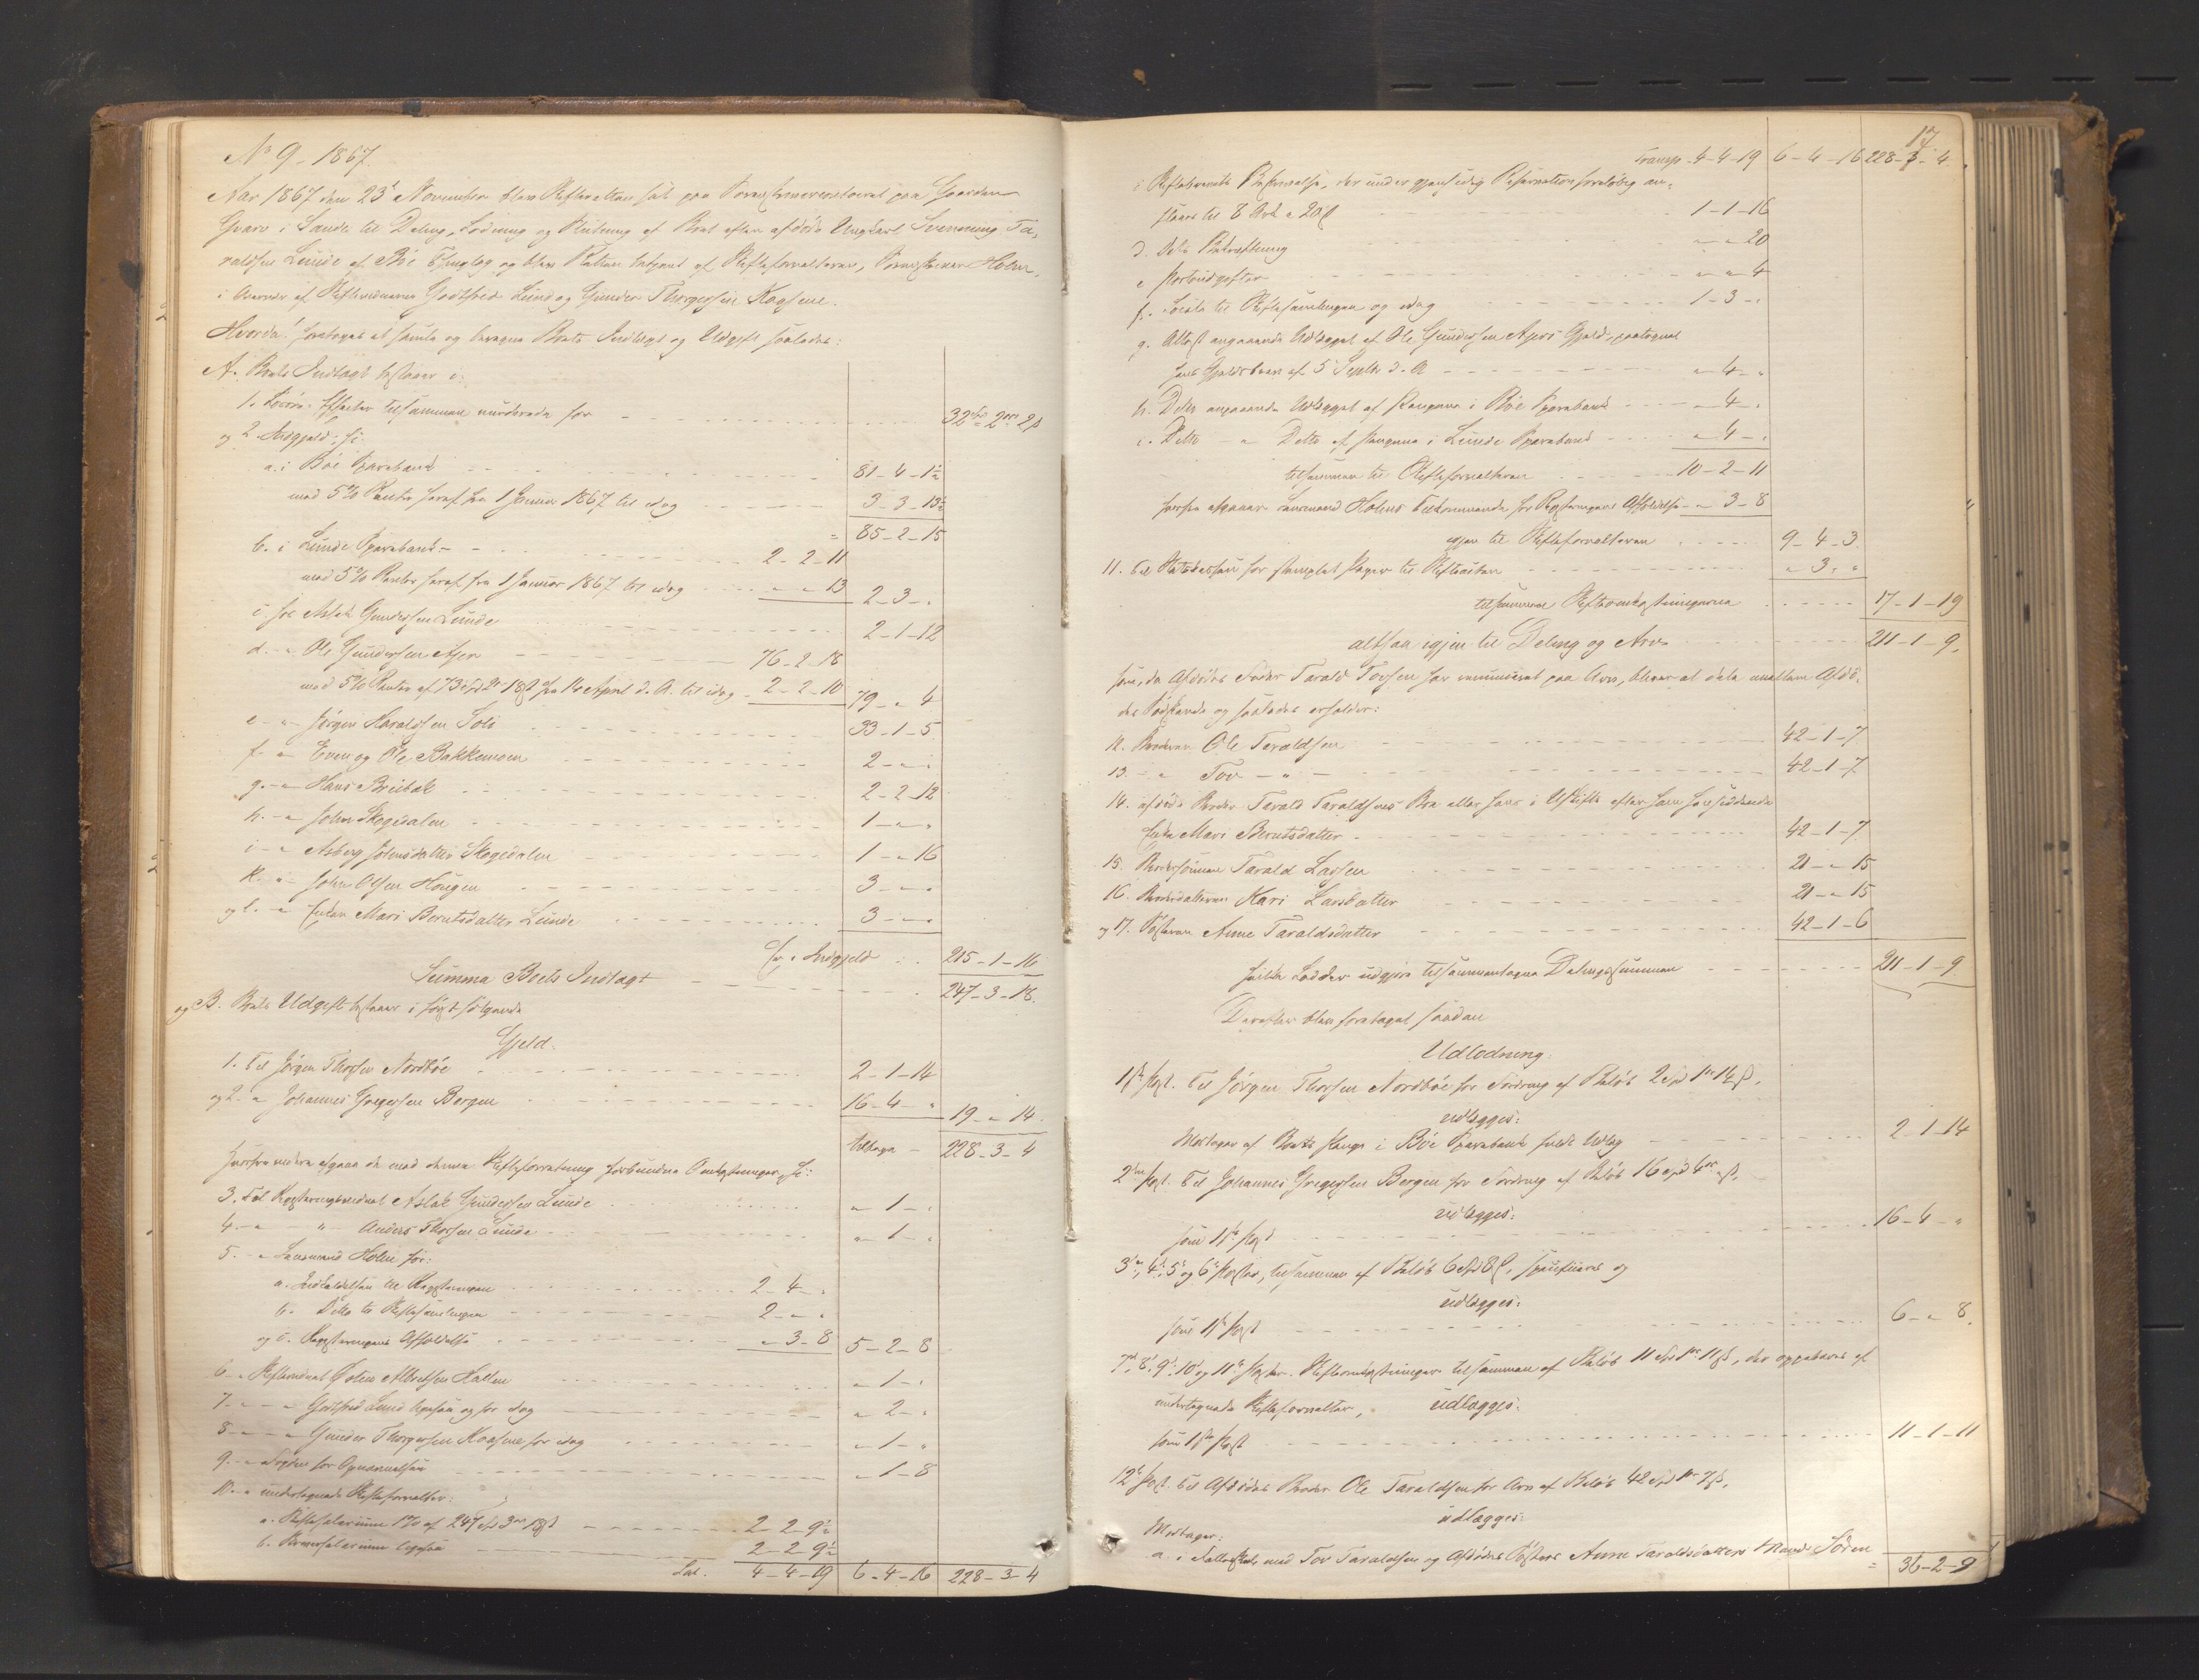 No 9 - 1867.
Aar 1867 den 23d November blev Skifteretten sat paa Sorenskrivercontoiret paa Gaarden
Gvarv i Saude til Deling, Lodning og Slutning af Boet efter afdøde Ungkarl Svenning Ta-
raldsen Lunde af Bø Thinglag og blev Retten betjent af Skifteforvalteren, Sorenskriver Holm,
i Overvær af Skiftevidnerne Godtfred Lund og Gunder Thorgersen Kaasene.
Hvorda! foretoges at samle og beregne Boets Indtægt og Udgift saaledes:
A. Boets Indtægt bestaaer i:
1. Løsøre-Effecter tilsammen vurderede for 32 Spd 2 ort 2 ß
og 2. Indgjeld, hos:
a. i Bø Sparebank 81-4-1½
med 5% Renter heraf fra 1 Januar 1867 til idag 3-3-13½
85-2-15
b. i Lunde Sparebank 2-2-11
med 5% Renter heraf fra 1 Januar 1867 til idag " " 13 2-3-"
c. hos Aslak Gundersen Lunde 2-1-12
d. - " Ole Gundersen Ajer 76-2-18
med 5% Renter af 73 Spd 2 ort 18 ß fra 14 April d. A. til idag 2-2-10 79-"-4
e - " Jørgen Haraldsen Foli 33-1-5
f - " Even og Ole Bakkemoen 2-"-"
g. - " Hans Breibak 2-2-12
h. - " John Skogedalen 1-"-"
i - " Asberg Johnsdatter Skogedalen 1-"-16
k. - " John Olsen Haugen 3-"-"
og l. - " Enken Mari Berntsdatter Lunde 3-"-"
er Indgjeld 215-1-16
Summa Boets Indtægt 247-3-18.
og B. Boets Udgift bestaaer i først følgende
Gjeld.
1. til Jørgen Thorsen Nordbø 2-1-14
og 2. " Johannes Gregersen Bergen 16-4-" 19-"-14.
tilbage 228-3-4
Herfra videre afgaaer de med denne Skifteforretning forbundne Omkostninger, så:
3. til Registreringsvidnet Aslak Gundersen Lunde "-1-"
4. - " - " - Anders Thorsen Lunde "-1-"
5. - " Lensmand Holm for:
a. Indkaldelsen til Registreringen 2-4-"
b. Dito til Skiftesamlingen 2-"-"
og c. Registreringens Afholdelse "-3-8 5-2-8
6 - " Skiftevidnet Albertsen Hallen "-1-"
7 - " - " Godtfred Lund ligesaa og for idag "-2-"
8 - " - " Gunder Thorgersen Kaasene for idag "-1-"
9. - " Fogden for "-1-8
10. - " undertegnede Skifteforvalter:
a. Skiftesalarium 1% af 247 Spd 3 ort 18 ß 2-2-9½
b. ligesaa 2-2-9½
Lat. 4-4-19 6-4-16 228-3-4
17.
Transp. 4-4-19 6-4-16 228-3-4.
c Skiftebrevets Beskrivelse, der under gjensidig Reservation foreløbig an-
slaaes til 8 Ark a 20 ß 1-1-16
d. Dets Bekræftning "-"-20
e Portoudgifter "-"-4
f. Locale til Skiftesamlingen og idag 1-3-"
g. Attest angaaende Udlægget af Ole Gundersen Ajers Gjeld, paategnet
hans Gjeldsbrev af 5 Septbr d. A. "-4-"
h. Dito angaaende Udlægget af Pengene i Bø Sparebank "-4-"
i. Dito - " Dito af Pengene i Lunde Sparebank "-4-"
tilsammen til Skifteforvalteren 10-2-11
herfra afgaaer Lensmand Holms Tilkommende for Registreringens Afholdelse "-3-8
igjen til Skifteforvalteren 9-4-3
11. til Statskassen for stemplet Papir til Skifteacten "-3-"
tilsammen Skifteomkostningerne 17-1-19
altsaa igjen til Deling og Arv 211-1-9,
som, da Afdødes Fader Tarald Tovsen har renunceret paa Arv, bliver at dele mellem Afdø-
des Sødskende og saaledes erholder:
12. Broderen Ole Taraldsen 42-1-7
13. - " Tov - " - 42-1-7
14. afdøde Broder Tarald Taraldsens Bo eller hans i Uskifte efter ham hensiddende
Enke Mari Berntsdatter 42-1-7
15. Brodersønnen Tarald Larsen 21-"-15
16. Broderdatteren Kari Larsdatter 21-"-15
og 17. Søsteren Anne Taraldsdatter 42-1-6
hvilke Lodder udgjøre tilsammentagne Delingssummen 211-1-9
Derefter blev foretaget saadan
Udlodning.
1ste Post. til Jørgen Thorsen Nordbø for Fordring af Beløb 2 Spd 1 ort 14 ß,
udlægges:
Modtager af Boets Penge i Bø Sparebank fuldt Udlæg 2-1-14
2den Post. til Johannes Gregersen Bergen for Fordring af Beløb 16 Spd 4 ort " ß,
udlægges:
som 1ste Post 16-4-"
3de, 4de, 5te og 6te Poster, tilsammen af Beløb 6 Spd 8 ß, og
udlægges:
som 1ste Post 6-"-8.
7de, 8de, 9de, 10de og 11te Poster. Skifteomkostninger tilsammen af Beløb 11 Spd 1 ort 11 ß, der oppebæres af
undertegnede Skifteforvalter, udlægges:
som 1ste Post 11-1-11
12te Post. til Afdødes Broder Ole Taraldsen for Arv af Beløb 42 Spd 1 ort 7 ß,
udlægges:
Modtager:
a. i Fællesskab med Tov Taraldsen og Afdødes Søsters Anne Taraldsdatters Mand Søren
36-2-9